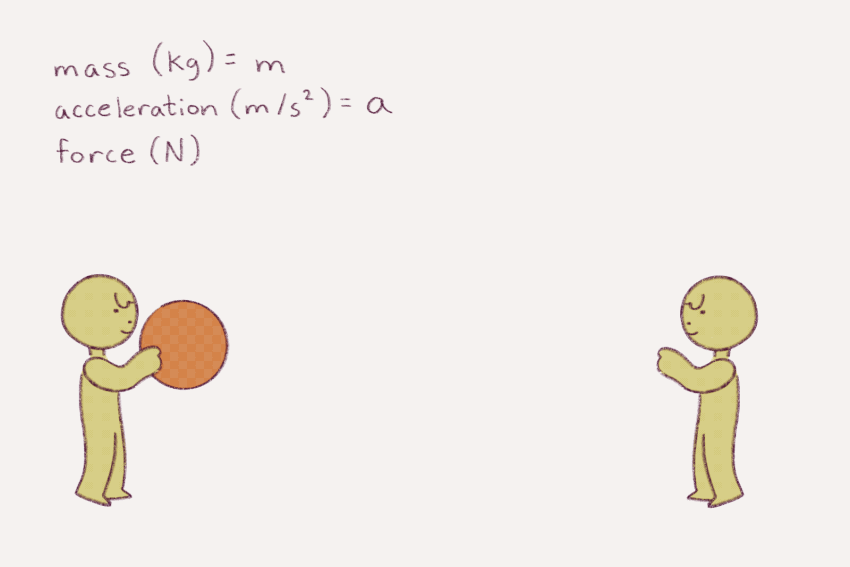 mass (kg) = m
acceleration (m/s²) = a
force (N)